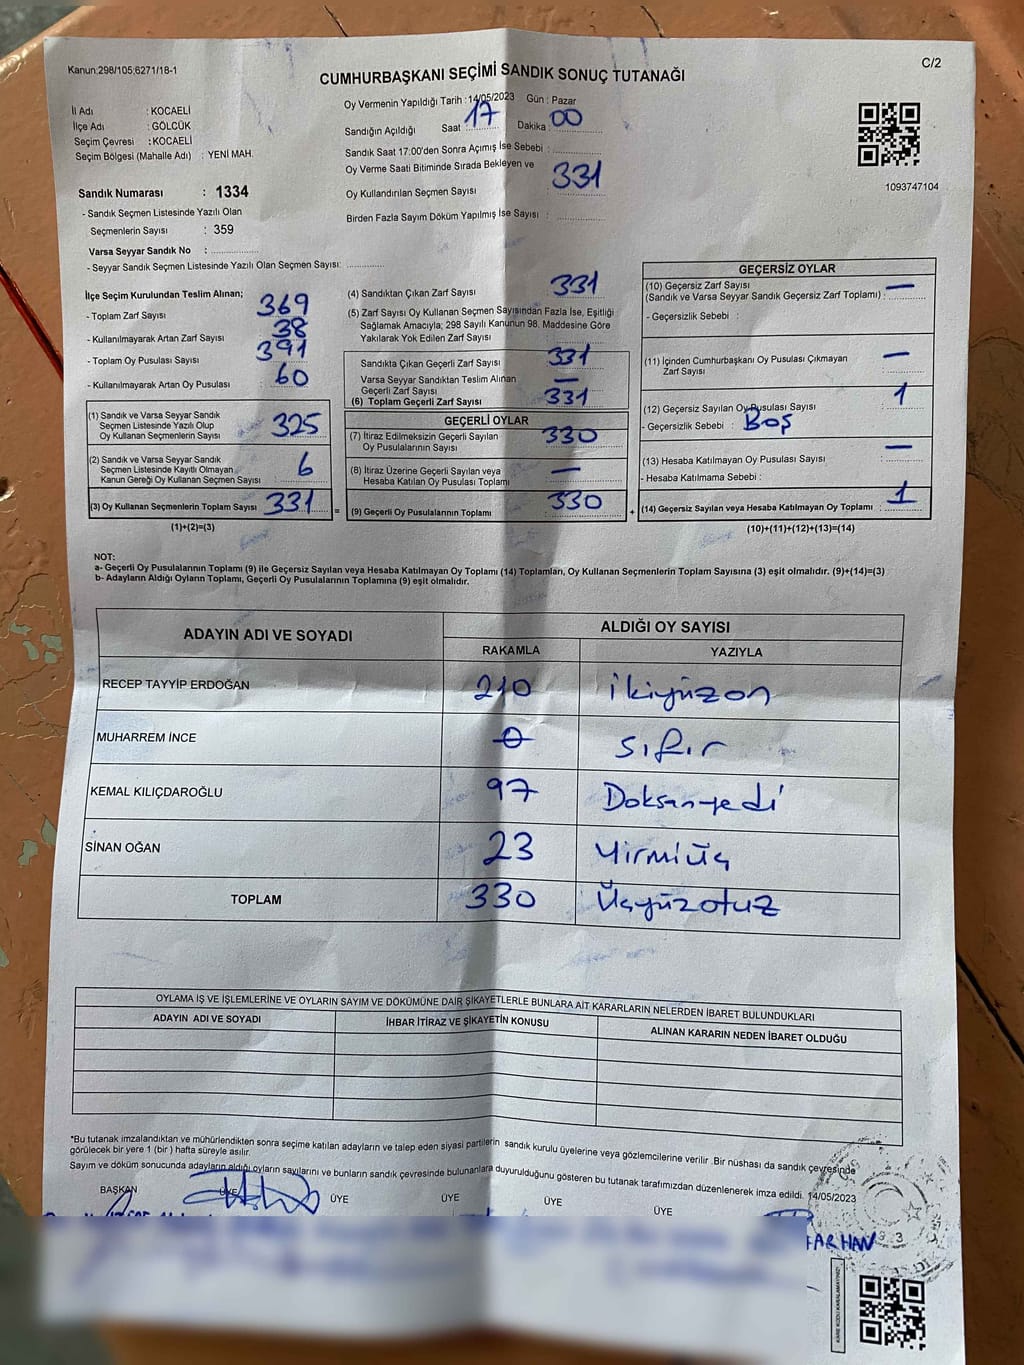 Kanun:298/105;6271/18-1
C/2
CUMHURBAŞKANI SEÇİMİ SANDIK SONUÇ TUTANAĞI
İl Adı : KOCAELİ
İlçe Adı : GÖLCÜK
Seçim Çevresi : KOCAELİ
Seçim Bölgesi (Mahalle Adı) : YENİ MAH.
Sandık Numarası : 1334
- Sandık Seçmen Listesinde Yazılı Olan
Seçmenlerin Sayısı : 359
Varsa Seyyar Sandık No :
- Seyyar Sandık Seçmen Listesinde Yazılı Olan Seçmen Sayısı:
Oy Vermenin Yapıldığı Tarih : 14/05/2023 Gün : Pazar
Sandığın Açıldığı Saat 17 Dakika 00
Sandık Saat 17:00'den Sonra Açımış İse Sebebi :
Oy Verme Saati Bitiminde Sırada Bekleyen ve
Oy Kullandırılan Seçmen Sayısı 331
Birden Fazla Sayım Döküm Yapılmış İse Sayısı :
1093747104
İlçe Seçim Kurulundan Teslim Alınan;
- Toplam Zarf Sayısı 369
- Kullanılmayarak Artan Zarf Sayısı 38
- Toplam Oy Pusulası Sayısı 391
- Kullanılmayarak Artan Oy Pusulası 60
(1) Sandık ve Varsa Seyyar Sandık
Seçmen Listesinde Yazılı Olup
Oy Kullanan Seçmenlerin Sayısı 325
(2) Sandık ve Varsa Seyyar Sandık
Seçmen Listesinde Kayıtlı Olmayan
Kanun Gereği Oy Kullanan Seçmen Sayısı 6
(3) Oy Kullanan Seçmenlerin Toplam Sayısı 331 =
(1)+(2)=(3)
(4) Sandıktan Çıkan Zarf Sayısı 331
(5) Zarf Sayısı Oy Kullanan Seçmen Sayısından Fazla İse, Eşitliği
Sağlamak Amacıyla; 298 Sayılı Kanunun 98. Maddesine Göre
Yakılarak Yok Edilen Zarf Sayısı
Sandıkta Çıkan Geçerli Zarf Sayısı 331
Varsa Seyyar Sandıktan Teslim Alınan
Geçerli Zarf Sayısı —
(6) Toplam Geçerli Zarf Sayısı 331
GEÇERLİ OYLAR
(7) İtiraz Edilmeksizin Geçerli Sayılan
Oy Pusulalarının Sayısı 330
(8) İtiraz Üzerine Geçerli Sayılan veya
Hesaba Katılan Oy Pusulaları Toplamı —
(9) Geçerli Oy Pusulalarının Toplamı 330 +
GEÇERSİZ OYLAR
(10) Geçersiz Zarf Sayısı
(Sandık ve Varsa Seyyar Sandık Geçersiz Zarf Toplamı) : —
- Geçersizlik Sebebi :
(11) İçinden Cumhurbaşkanı Oy Pusulası Çıkmayan
Zarf Sayısı —
(12) Geçersiz Sayılan Oy Pusulası Sayısı 1
- Geçersizlik Sebebi : Boş
(13) Hesaba Katılmayan Oy Pusulası Sayısı —
- Hesaba Katılmama Sebebi :
(14) Geçersiz Sayılan veya Hesaba Katılmayan Oy Toplamı : 1
(10)+(11)+(12)+(13)=(14)
NOT:
a- Geçerli Oy Pusulalarının Toplamı (9) ile Geçersiz Sayılan veya Hesaba Katılmayan Oy Toplamı (14) Toplamları, Oy Kullanan Seçmenlerin Toplam Sayısına (3) eşit olmalıdır. (9)+(14)=(3)
b- Adayların Aldığı Oyların Toplamı, Geçerli Oy Pusulalarının Toplamına (9) eşit olmalıdır.
ADAYIN ADI VE SOYADI ALDIĞI OY SAYISI
RAKAMLA YAZIYLA
RECEP TAYYİP ERDOĞAN 210 ikiyüzon
MUHARREM İNCE 0 sıfır
KEMAL KILIÇDAROĞLU 97 Doksanyedi
SİNAN OĞAN 23 Yirmiüç
TOPLAM 330 Üçyüzotuz
OYLAMA İŞ VE İŞLEMLERİNE VE OYLARIN SAYIM VE DÖKÜMÜNE DAİR ŞİKAYETLERLE BUNLARA AİT KARARLARIN NELERDEN İBARET BULUNDUKLARI
ADAYIN ADI VE SOYADI İHBAR İTİRAZ VE ŞİKAYETİN KONUSU ALINAN KARARIN NEDEN İBARET OLDUĞU
*Bu tutanak imzalandıktan ve mühürlendikten sonra seçime katılan adayların ve talep eden siyasi partilerin sandık kurulu üyelerine veya gözlemcilerine verilir. Bir nüshası da sandık çevresinde
görülecek bir yere 1 (bir) hafta süreyle asılır.
Sayım ve döküm sonucunda adayların aldığı oyların sayılarını ve bunların sandık çevresinde bulunanlara duyurulduğunu gösteren bu tutanak tarafımızdan düzenlenerek imza edildi. 14/05/2023
BAŞKAN ÜYE ÜYE ÜYE ÜYE ÜYE
FARHAN